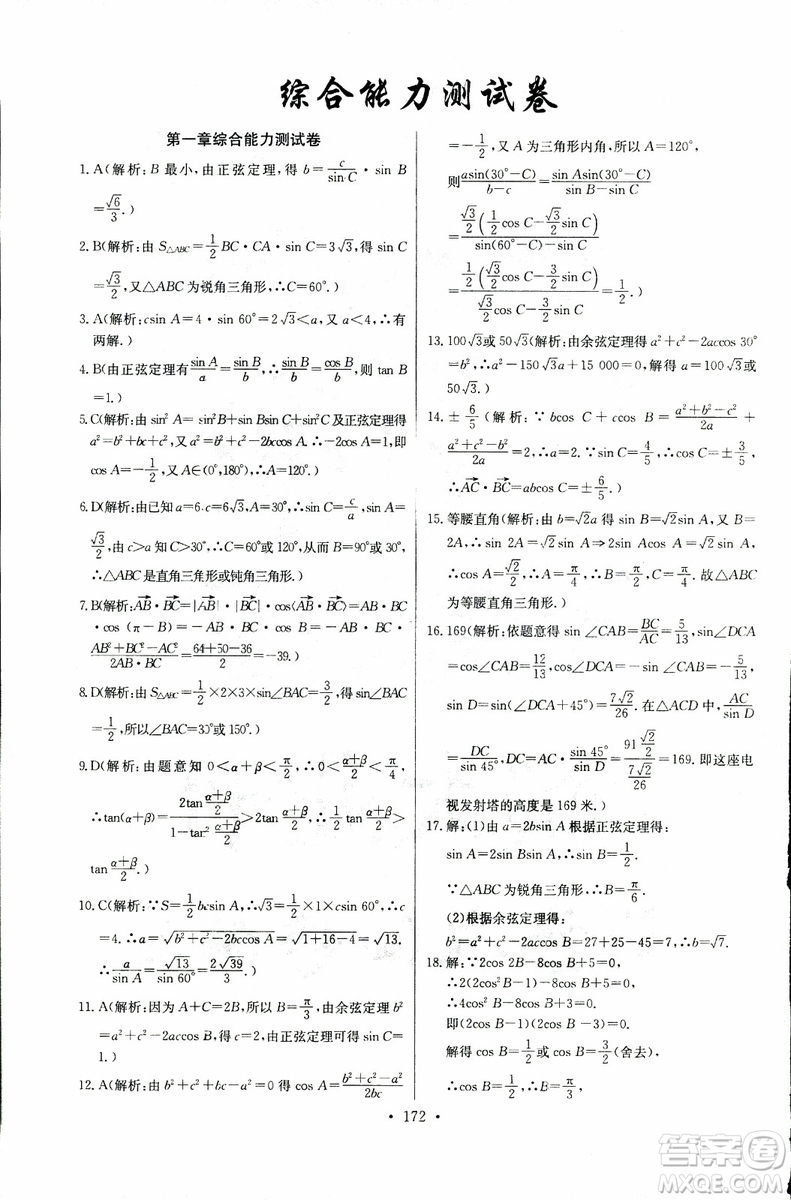 综合能力测试卷
第一章综合能力测试卷
1. A(解析:B 最小,由正弦定理,得 b=c/sin C·sin B
=√6/3.)
2. B(解析:由 S△ABC=1/2 BC·CA·sin C=3√3,得 sin C
=√3/2,又△ABC 为锐角三角形,∴C=60°.)
3. A(解析:csin A=4·sin 60°=2√3<a,又 a<4,∴有
两解.)
4. B(由正弦定理有 sin A/a=sin B/b,∴sin B/b=sin B/b,则 tan B
=1.)
5. C(解析:由 sin² A=sin² B+sin Bsin C+sin² C 及正弦定理得
a²=b²+bc+c²,又 a²=b²+c²-2bccos A.∴-2cos A=1,即
cos A=-1/2,又 A∈(0,180°),∴A=120°.)
6. D(解析:由已知 a=6,c=6√3,A=30°,∴sin C=c/a,
√3/2,由 c>a 知 C>30°,∴C=60°或 120°,从而 B=90°或 30°.
∴△ABC 是直角三角形或钝角三角形.)
7. B(解析:AB→·BC→=|AB→|·|BC→|·cos(π-B)=-AB·BC
·cos (π-B)=-AB·BC·cos B=-AB·BC·
(AB²+BC²-AC²)/(2AB·BC)=-(64+50-36)/2=-39.)
8. D(解析:由 S△ABC=1/2×2×3×sin∠BAC=3/2,得 sin∠BAC
=1/2,所以∠BAC=30°或 150°.)
9. D(解析:由题意知 0<α+β<π/2,∴0<(α+β)/2<π/4,
∴tan(α+β)=2tan (α+β)/2 / (1-tan² (α+β)/2)>2tan (α+β)/2,∴1/2 tan(α+β)>
tan (α+β)/2.)
10. C(解析:∵S=1/2 bcsin A,∴√3=1/2×1×csin 60°,∴c
=4.∴a=√(b²+c²-2bccos A)=√(1+16-4)=√13.
∴a/sin A=√13/sin 60°=2√39/3.)
11. A(解析:因为 A+C=2B,所以 B=π/3,由余弦定理 b²
=a²+c²-2accos B,得 c=2,由正弦定理可得 sin C=
1.)
12. A(解析:由 b²+c²+bc-a²=0 得 cos A=(b²+c²-a²)/2bc
=-1/2,又 A 为三角形内角,所以 A=120°,
则 asin(30°-C)/(b-c)=sin Asin(30°-C)/(sin B-sin C)
=√3/2(1/2 cos C-√3/2 sin C)/(sin(60°-C)-sin C)
=1/2(√3/2 cos C-3/2 sin C)/(√3/2 cos C-3/2 sin C)=1/2.)
13. 100√3或 50√3(解析:由余弦定理 a²+c²-2accos 30°
=b²,∴a²-150√3a+15 000=0,解得 a=100√3或
50√3.)
14. ±6/5(解析:∵bcos C+ccos B=(a²+b²-c²)/2a+
(a²+c²-b²)/2a=2,∴a=2.又 sin C=4/5,∴cos C=±3/5,
∴AC→·BC→=abcos C=±6/5.)
15. 等腰直角(解析:由 b=√2a 得 sin B=√2sin A,又 B=
2A,∴sin 2A=√2sin A⇒2sin Acos A=√2sin A.
∵sin A≠0,∴cos A=√2/2,∴A=45°,B=90°.故△ABC
为等腰直角三角形.)
16. 169(解析:依题意得 sin∠CAB=BC/AC=5/13,sin∠DCA
=cos∠CAB=12/13,cos∠DCA=-sin∠CAB=-5/13,
sin D=sin(∠DCA+45°)=7√2/26.在△ACD 中,AC/sin D
=DC/sin 45°,∴DC=AC·sin 45°/sin D=(91 √2/2)/(7√2/26)=169.即这座电
视发射塔的高度是 169 米.)
17. 解:(1)由 a=2bsin A 根据正弦定理得:
sin A=2sin Bsin A,∴sin B=1/2.
∵△ABC 为锐角三角形,∴B=π/6.
(2)根据余弦定理得:
b²=a²+c²-2accos B=7,∴b=√7.
18. 解:∵2cos 2B-8cos B+5=0,
∴2(2cos² B-1)-8cos B+5=0.
∴4cos² B-8cos B+3=0.
即(2cos B-1)(2cos B-3)=0.
解得 cos B=1/2或 cos B=3/2(舍去).
∴cos B=1/2,∴B=π/3.
·172·
答案圈
MXQE.COM